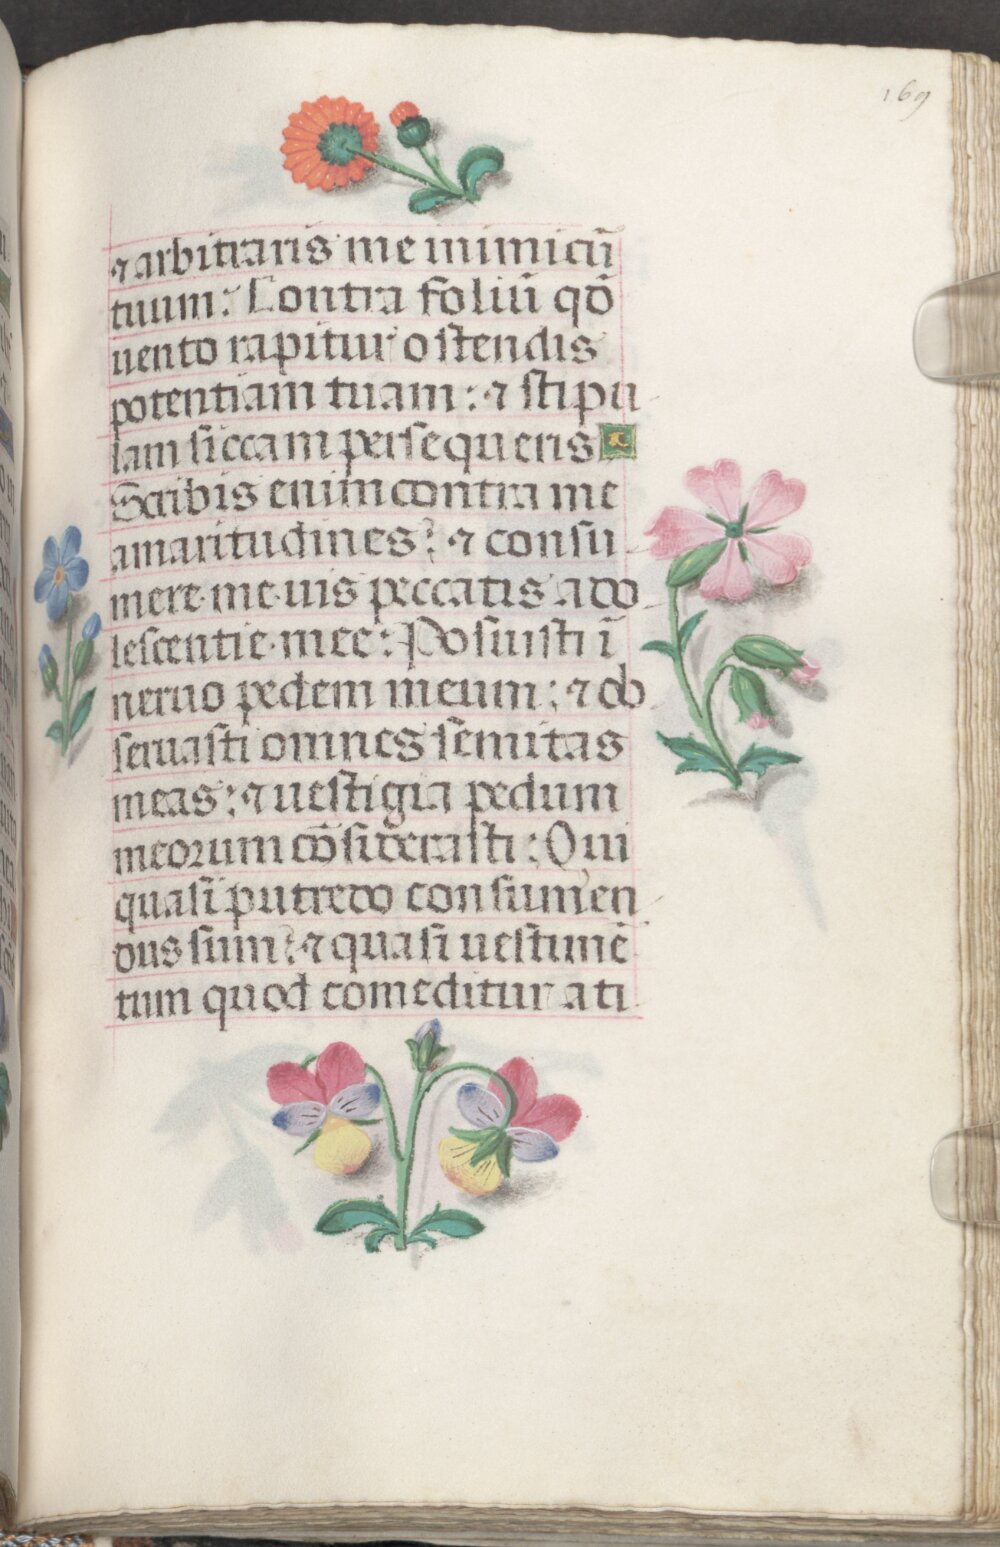 169
⁊ arbitraris me inimicū
tuum: Contra foliū qđ
uento rapitur ostendis
potentiam tuam: ⁊ stipu
lam siccam persequeris
Scribis enim contra me
amaritudines: ⁊ consu
mere me uis peccatis ado
lescentie mee: Posuisti ī
neruo pedem meum: ⁊ ob
seruasti omnes semitas
meas: ⁊ uestigia pedum
meorum cōsiderasti: Qui
quasi putredo consumen
dus sum: ⁊ quasi uestimē
tum quod comeditur a ti